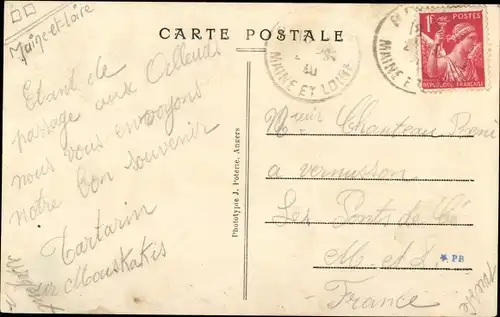 Maine-et-Loire
CARTE POSTALE
POSTES
1F
REPUBLIQUE FRANÇAISE
40
MAINE ET LOIRE
MAINE E
Etant de
passage aux Alleuds
nous vous envoyons
notre bon souvenir
Tartarin
sur Mouskakis
Phototype J. Poterie, Angers
Chanteau René
a vernusson
Les Ponts de Cé
M. et L.
* PB
France